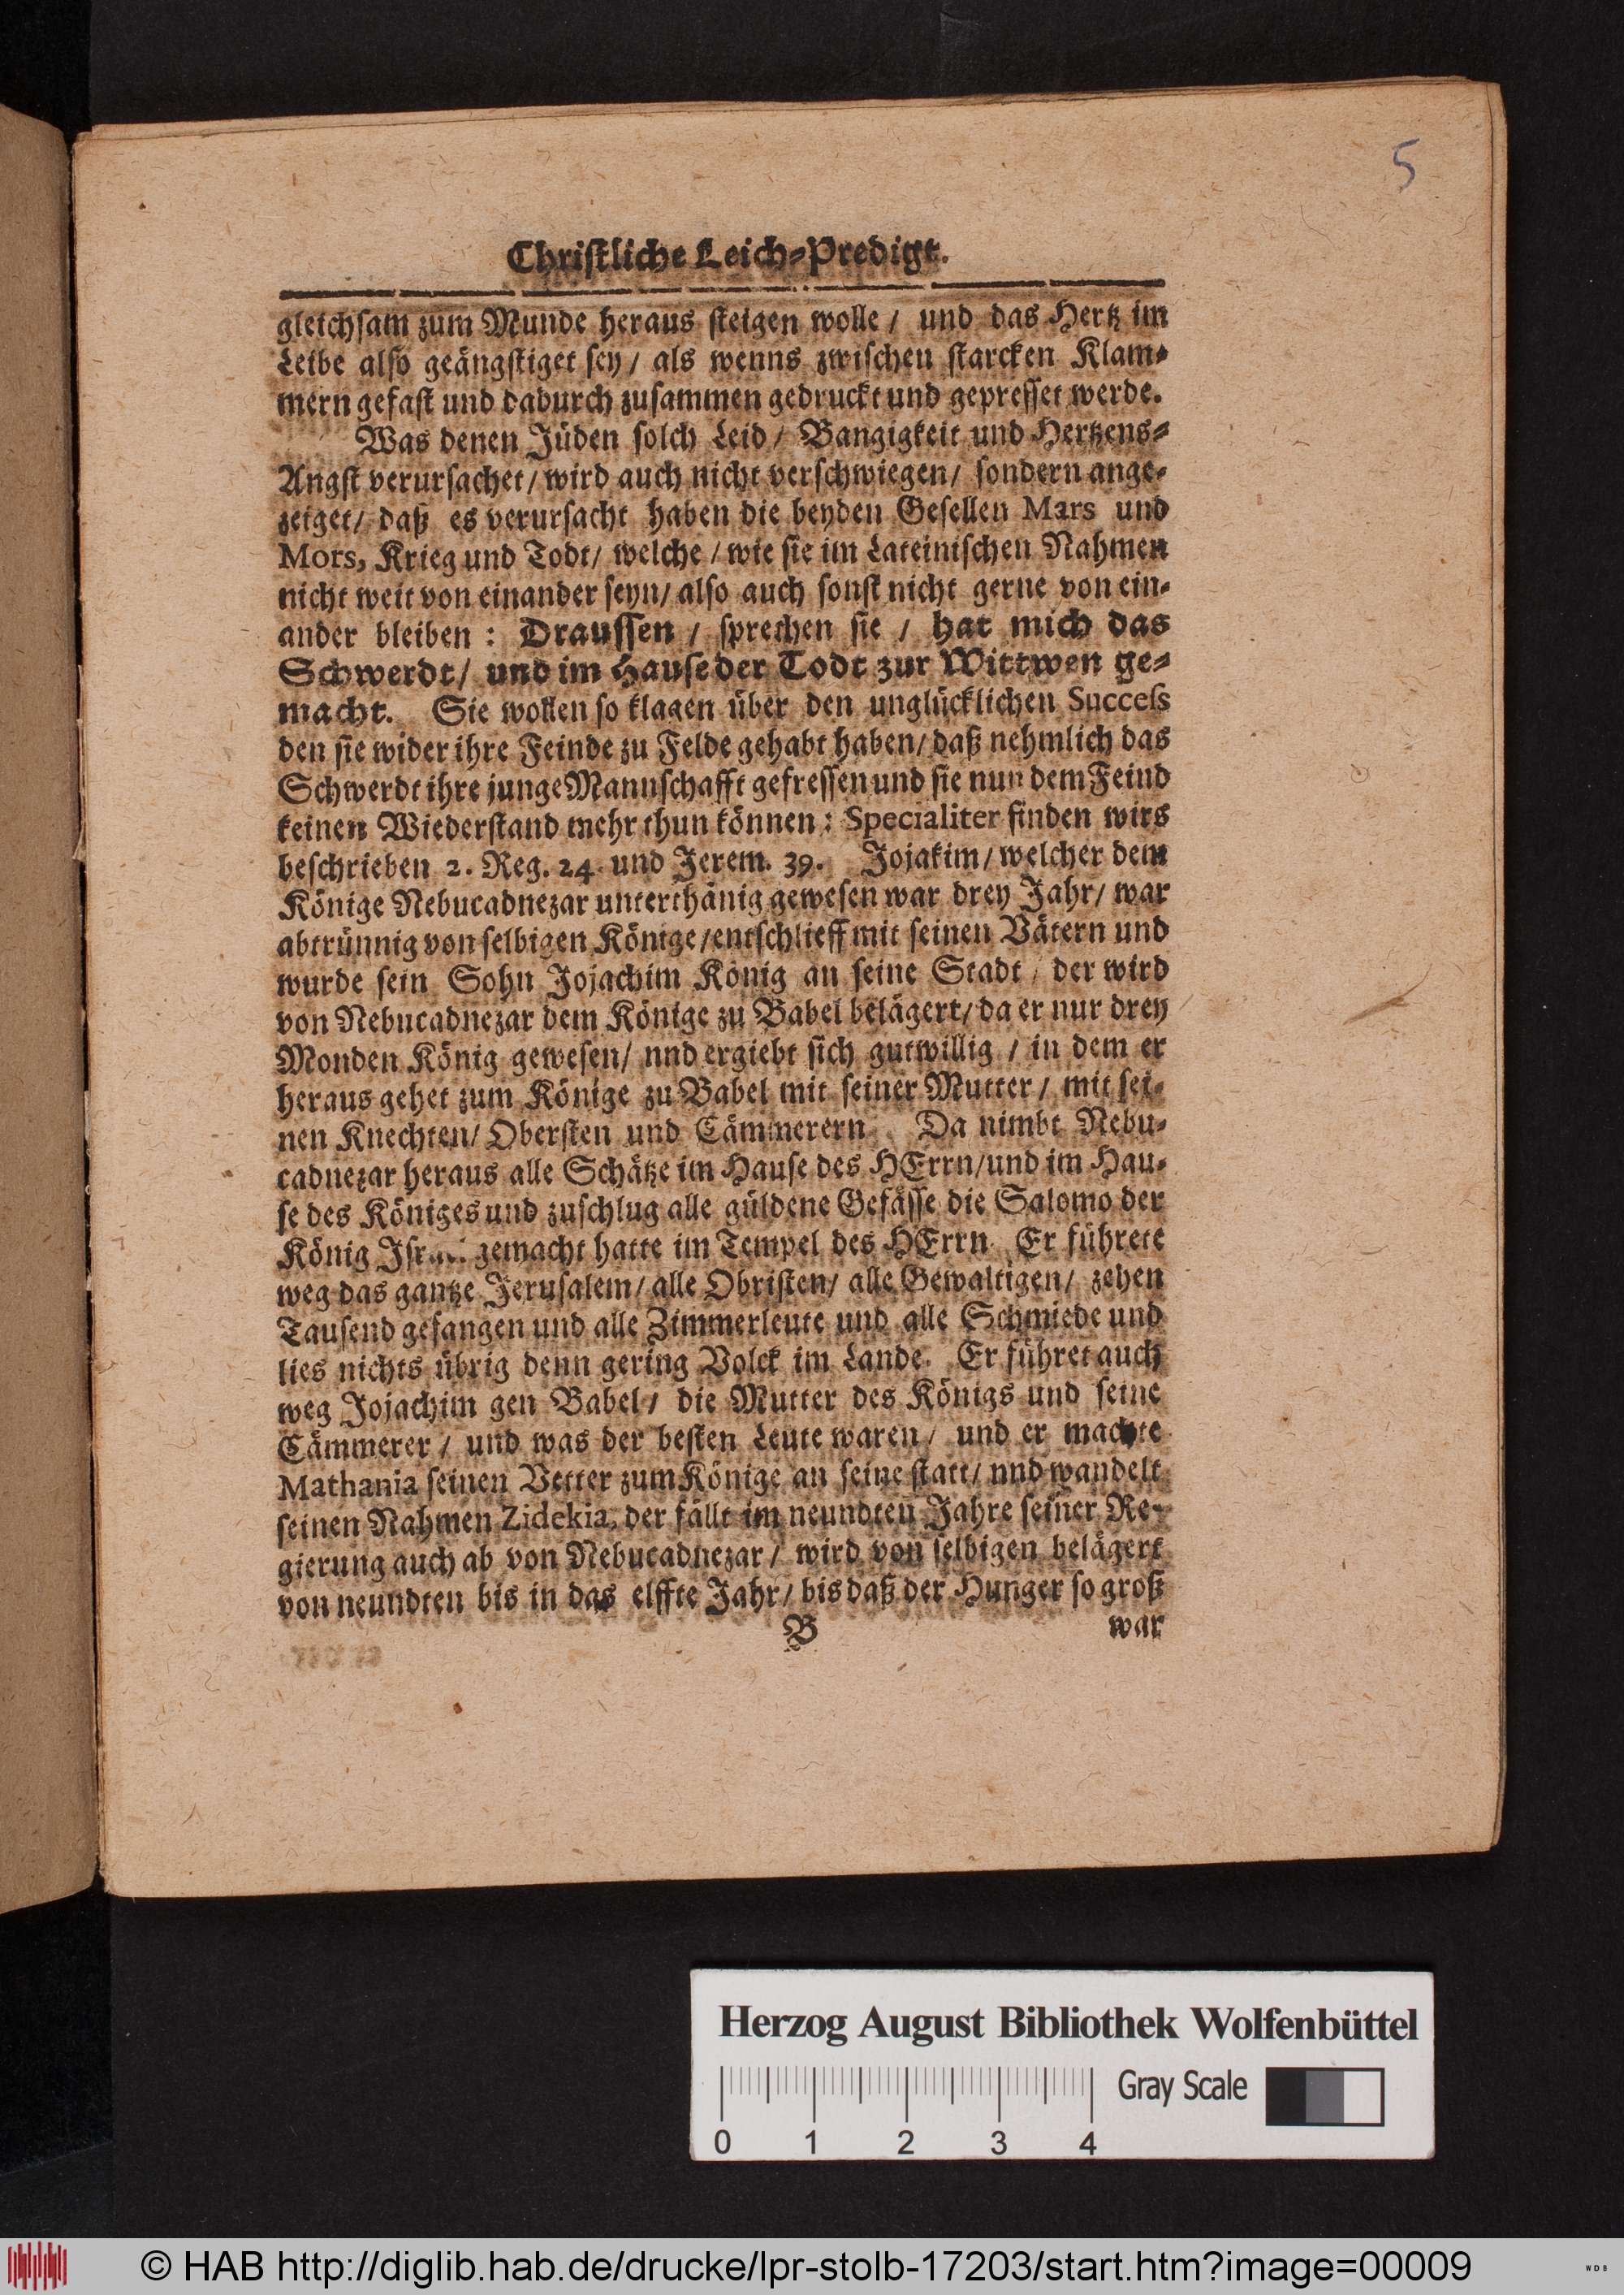 5
Christliche Leich-Predigt.
gleichsam zum Munde heraus steigen wolle / und das Hertz im
Leibe also geängstiget sey / als wenns zwischen starcken Klam-
mern gefast und dadurch zusammen gedruckt und gepresset werde.
Was denen Jüden solch Leid / Bangigkeit und Hertzens-
Angst verursachet / wird auch nicht verschwiegen / sondern ange-
zeiget / daß es verursacht haben die beyden Gesellen Mars und
Mors, Krieg und Todt / welche / wie sie im Lateinischen Nahmen
nicht weit von einander seyn / also auch sonst nicht gerne von ein-
ander bleiben : Draussen / sprechen sie / hat mich das
Schwerdt / und im Hause der Todt zur Wittwen ge-
macht. Sie wollen so klagen über den unglücklichen Success
den sie wider ihre Feinde zu Felde gehabt haben / daß nehmlich das
Schwerdt ihre junge Mannschafft gefressen und sie nun dem Feind
keinen Wiederstand mehr thun können : Specialiter finden wirs
beschrieben 2. Reg. 24. und Jerem. 39. Jojakim / welcher dem
Könige Nebucadnezar unterthänig gewesen war drey Jahr / war
abtrünnig von selbigen Könige / entschlieff mit seinen Vätern und
wurde sein Sohn Jojachim König an seine Stadt / der wird
von Nebucadnezar dem Könige zu Babel belägert / da er nur drey
Monden König gewesen / nnd ergiebt sich gutwillig / in dem er
heraus gehet zum Könige zu Babel mit seiner Mutter / mit sei-
nen Knechten / Obersten und Cämmerern. Da nimbt Nebu-
cadnezar heraus alle Schätze im Hause des HErrn / und im Hau-
se des Königes und zuschlug alle güldene Gefässe die Salomo der
König gemacht hatte im Tempel des HErrn. Er führete
weg das gantze Jerusalem / alle Obristen / alle Gewaltigen / zehen
Tausend gefangen und alle Zimmerleute und alle Schmiede und
lies nichts übrig denn gering Volck im Lande. Er führet auch
weg Jojachim gen Babel / die Mutter des Königs und seine
Cämmerer / und was der besten Leute waren / und er machte
Mathania seinen Vetter zum Könige an seine statt / nnd wandelt
seinen Nahmen Zidekia, der fällt im neundten Jahre seiner Re-
gierung auch ab von Nebucadnezar / wird von selbigen belägert
von neundten bis in das elffte Jahr / bis daß der Hunger so groß
B war
Herzog August Bibliothek Wolfenbüttel
Gray Scale
0 1 2 3 4
© HAB http://diglib.hab.de/drucke/lpr-stolb-17203/start.htm?image=00009
WDB